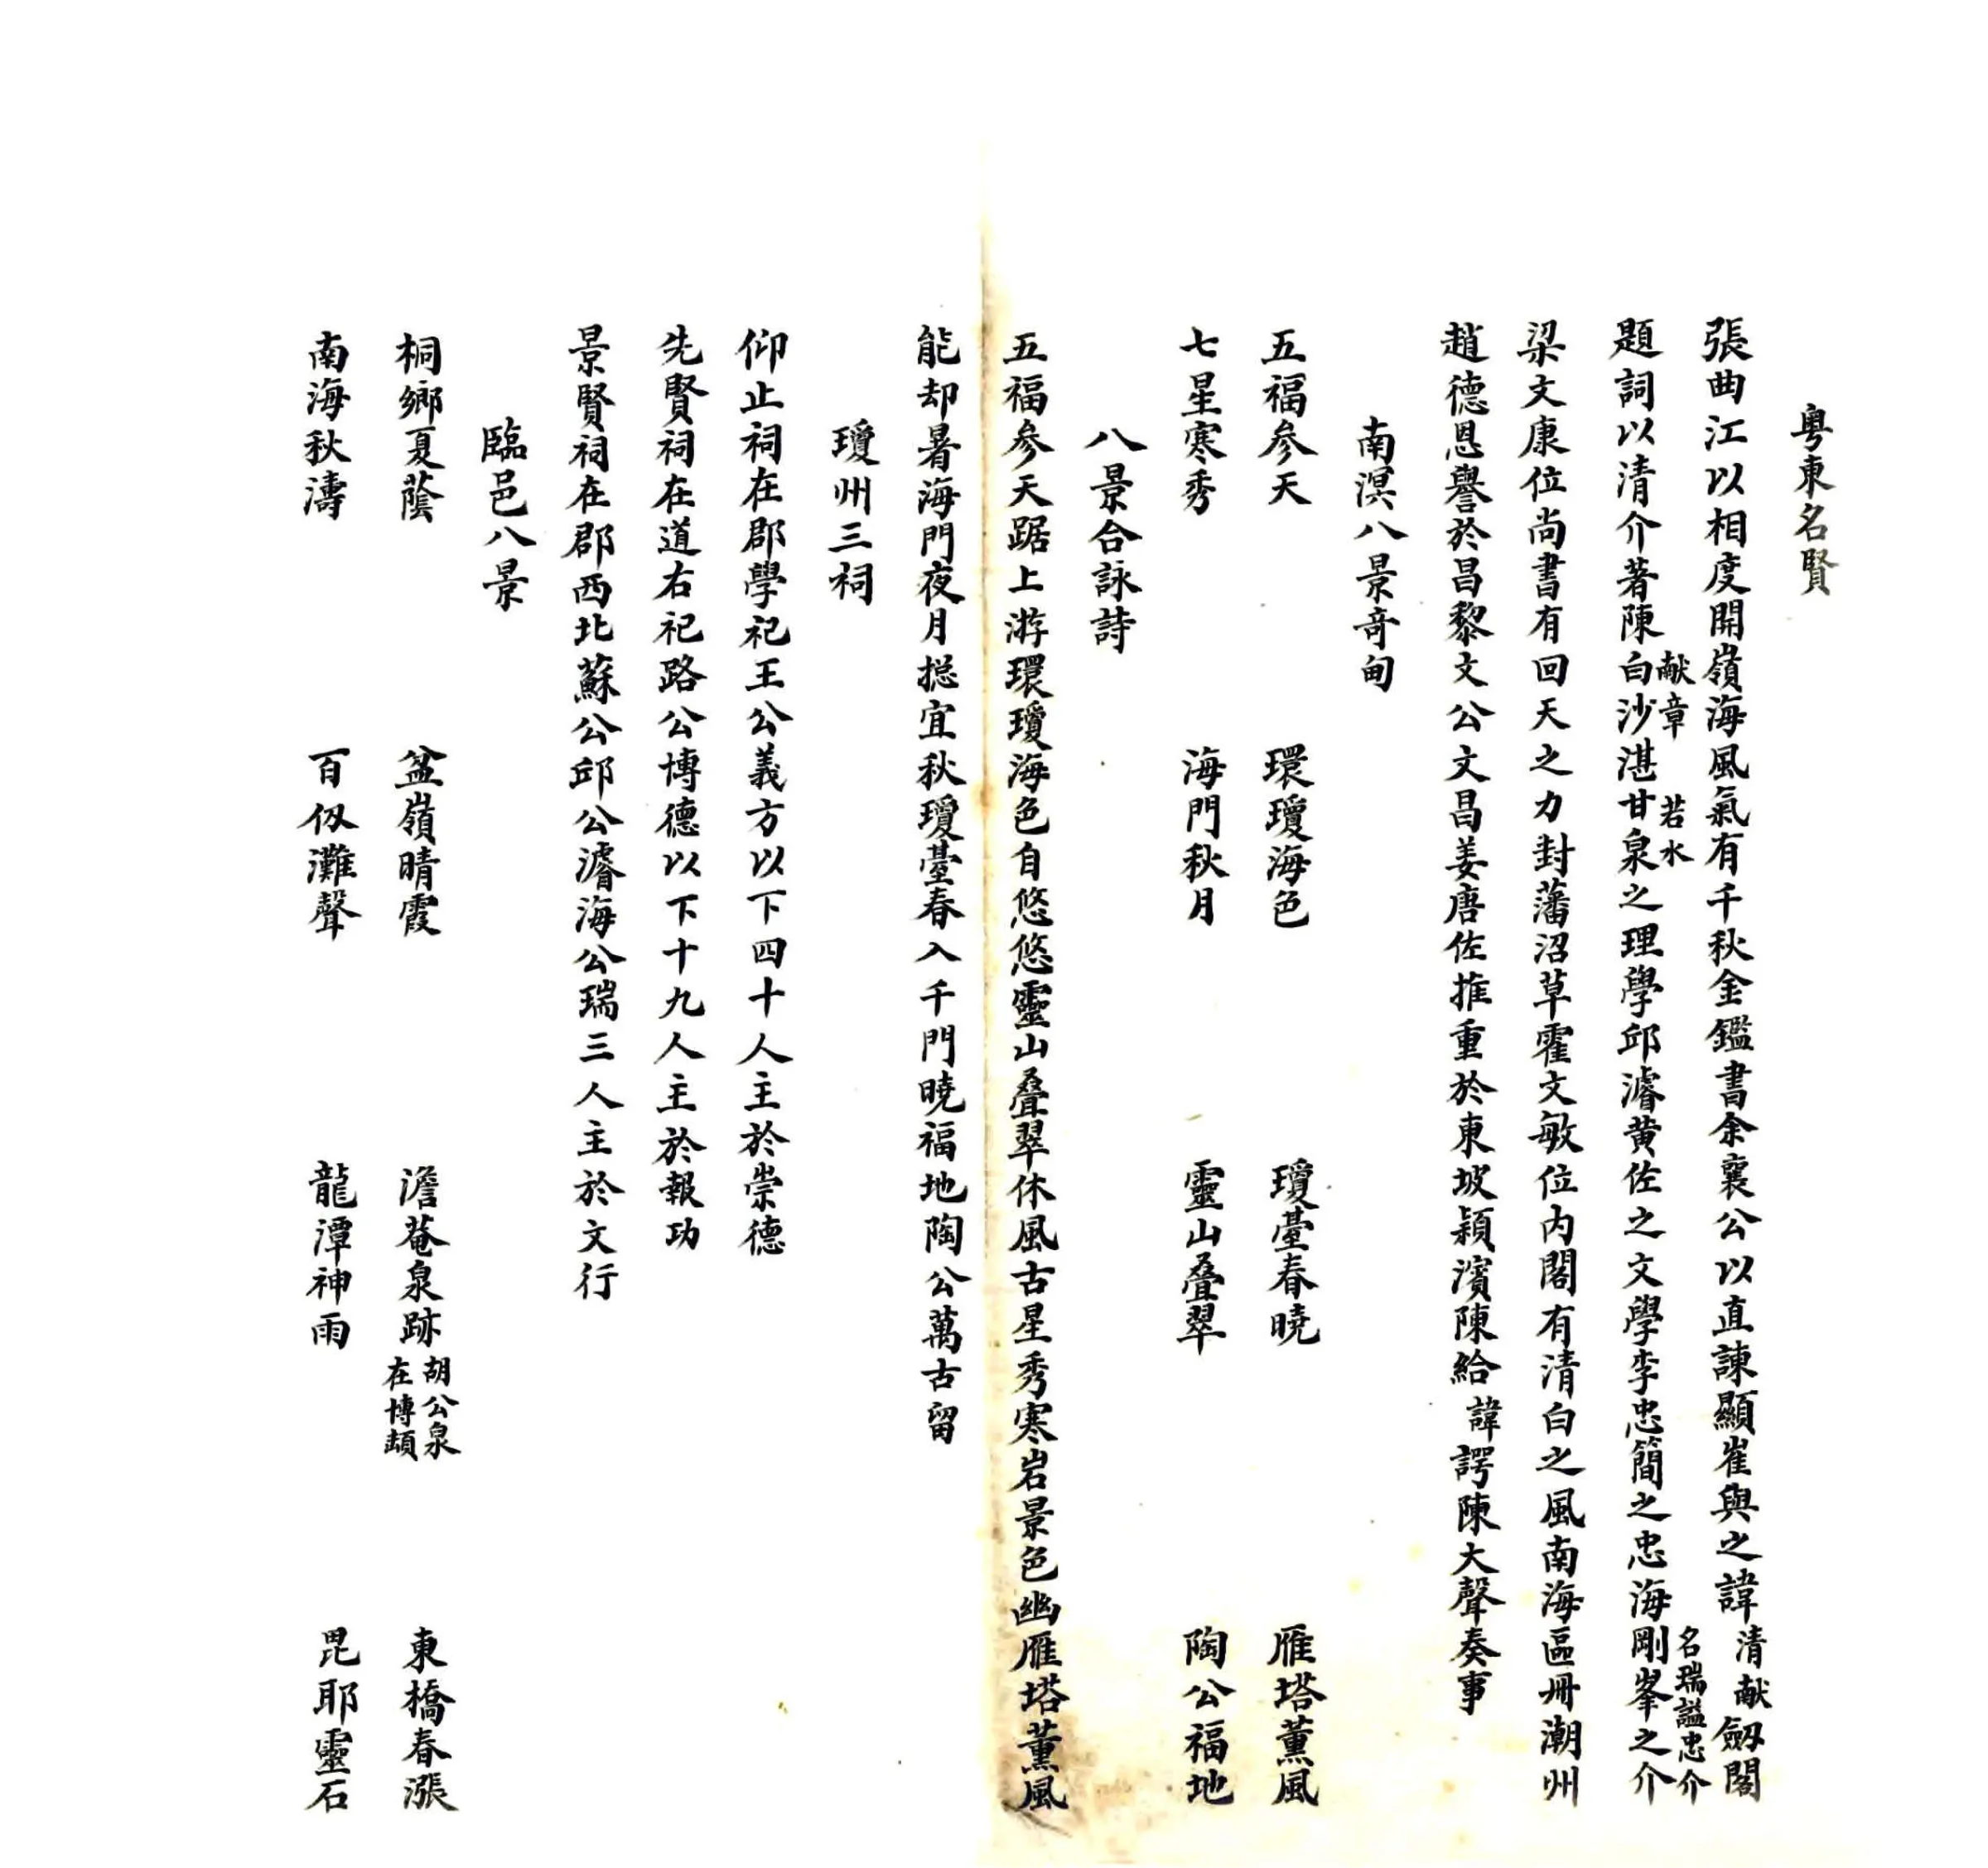 粵東名賢
張曲江以相度開嶺海風氣有千秋金鑑書余襄公以直諫顯崔與之諱清献劔閣
題詞以清介著陳白沙献章湛甘泉若水之理學邱濬黃佐之文學李忠簡之忠海剛峯之介名瑞謚忠介
梁文康位尚書有回天之力封藩沼草霍文敏位內閣有清白之風南海區冊潮州
趙德恩譽於昌黎文公文昌姜唐佐推重於東坡潁濱陳給諱諤陳大聲奏事
南溟八景奇甸
五福參天 環瓊海色 瓊臺春曉 雁塔薰風
七星寒秀 海門秋月 靈山叠翠 陶公福地
八景合詠詩
五福參天踞上游環瓊海色自悠悠靈山叠翠休風古星秀寒岩景色幽雁塔薰風
能却暑海門夜月搃宜秋瓊臺春入千門曉福地陶公萬古留
瓊州三祠
仰止祠在郡學祀王公義方以下四十人主於崇德
先賢祠在道右祀路公博德以下十九人主於報功
景賢祠在郡西北蘇公邱公濬海公瑞三人主於文行
臨邑八景
桐鄉夏蔭 盆嶺晴霞 澹菴泉跡胡公泉在博頓 東橋春漲
南海秋濤 百仭灘聲 龍潭神雨 毘耶靈石